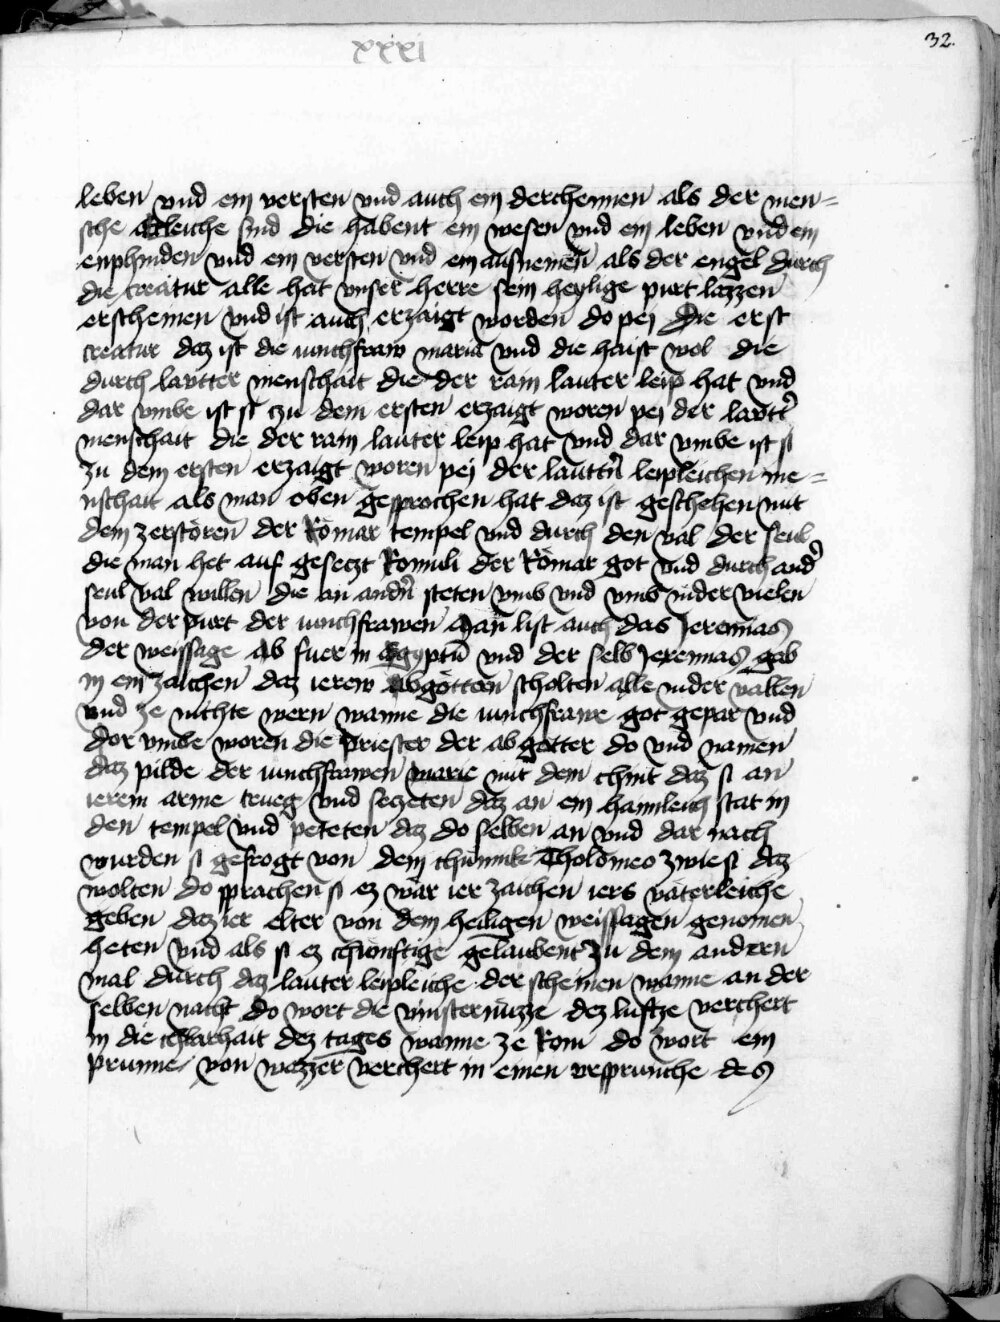 xxxi
32.
leben vnd ein versten vnd auch ein derchennen als der men=
sche etleiche sind die habent ein wesen vnd ein leben vnd ein
enphinden vnd ein versten vnd ein ausnemen als der engel durch
die creatur alle hat vnser herre sein heylige purt lazzen
erscheinen vnd ist auch erzaigt worden do pej die erst
creatur daz ist die iunchfraw maria vnd die haist wol die
durch lautter menschait die der rain lauter leip hat vnd
dar vmbe ist si czu dem ersten erzaigt woren pej der lautt͛
menschait die der rain lauter leip hat vnd dar vmbe ist si
zu dem ersten erzaigt woren pej der lautt͛n leipleichen me=
nschait als man oben gesprochen hat daz ist geschehen mit
dem zerstören der Römar tempel vnd durch den val der seul
die man het auf geseczt Romuli der Römar got vnd durch and͛
seul val willen die an and͛n steten vmb vnd vmb nider vielen
von der purt der iunchfrawen Man list auch das Jeremias
der weissage ab fuer in egyptū vnd der selb Jeremias gab
in ein zaichen daz ierew abgötter scholten alle nider vallen
vnd ze nichte wern wanne die iunchfrawe got gepar vnd
dor vmbe woren die priester der ab götter do vnd namen
daz pilde der iunchfrawen marie mit dem chint daz si an
ierem arme trueg vnd seczeten daz an ein haimleich stat in
den tempel vnd peteten daz do selben an vnd dar nach
wurden si gefrogt von dem chünnik Tholomeo zwie si daz
wolten do sprachen si ez wär ier zaichen iers väterleiche
geben daz ier elter von dem heiligen weissagen genomen
heten vnd als si ez chünftige gelaubent Zu dem andern
mal durch daz lauter leipleiche der scheinen wanne an der
selben nacht do wort die vinsternüzze dez luftze verchert
in die chlarhait dez tages wanne ze Rom do wort ein
prunne von wazzer verchert in einen vrsprunche des